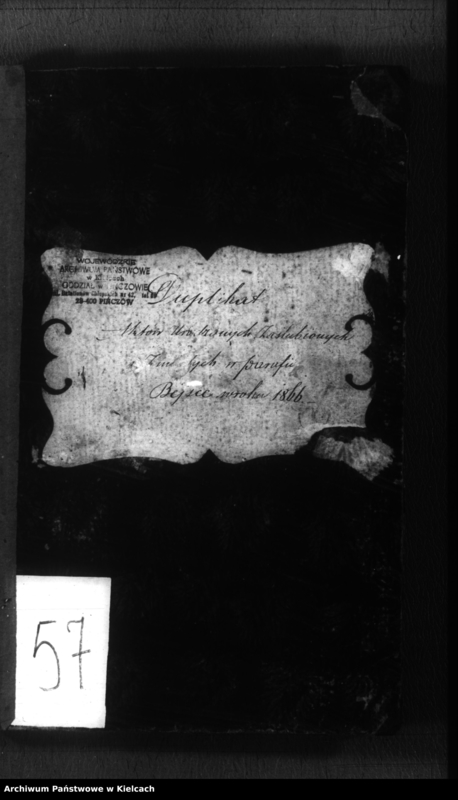 WOJEWÓDZKIE
ARCHIWUM PAŃSTWOWE
w Kielcach
ODDZIAŁ w PIŃCZOWIE
28-400 PIŃCZÓW
Duplikat
Aktów Urodzonych Zaślubionych
i Zmarłych w parafii
Bejsce w roku 1866
57
Archiwum Państwowe w Kielcach